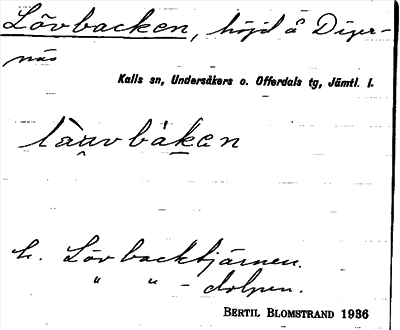 Lövbacken, höjd å Diger-
näs
Kalls sn, Undersåkers o. Offerdals tg, Jämtl. l.
làu̯vbàken
h. Lövbacktjärnen.
" " - dolpen.
BERTIL BLOMSTRAND 1936